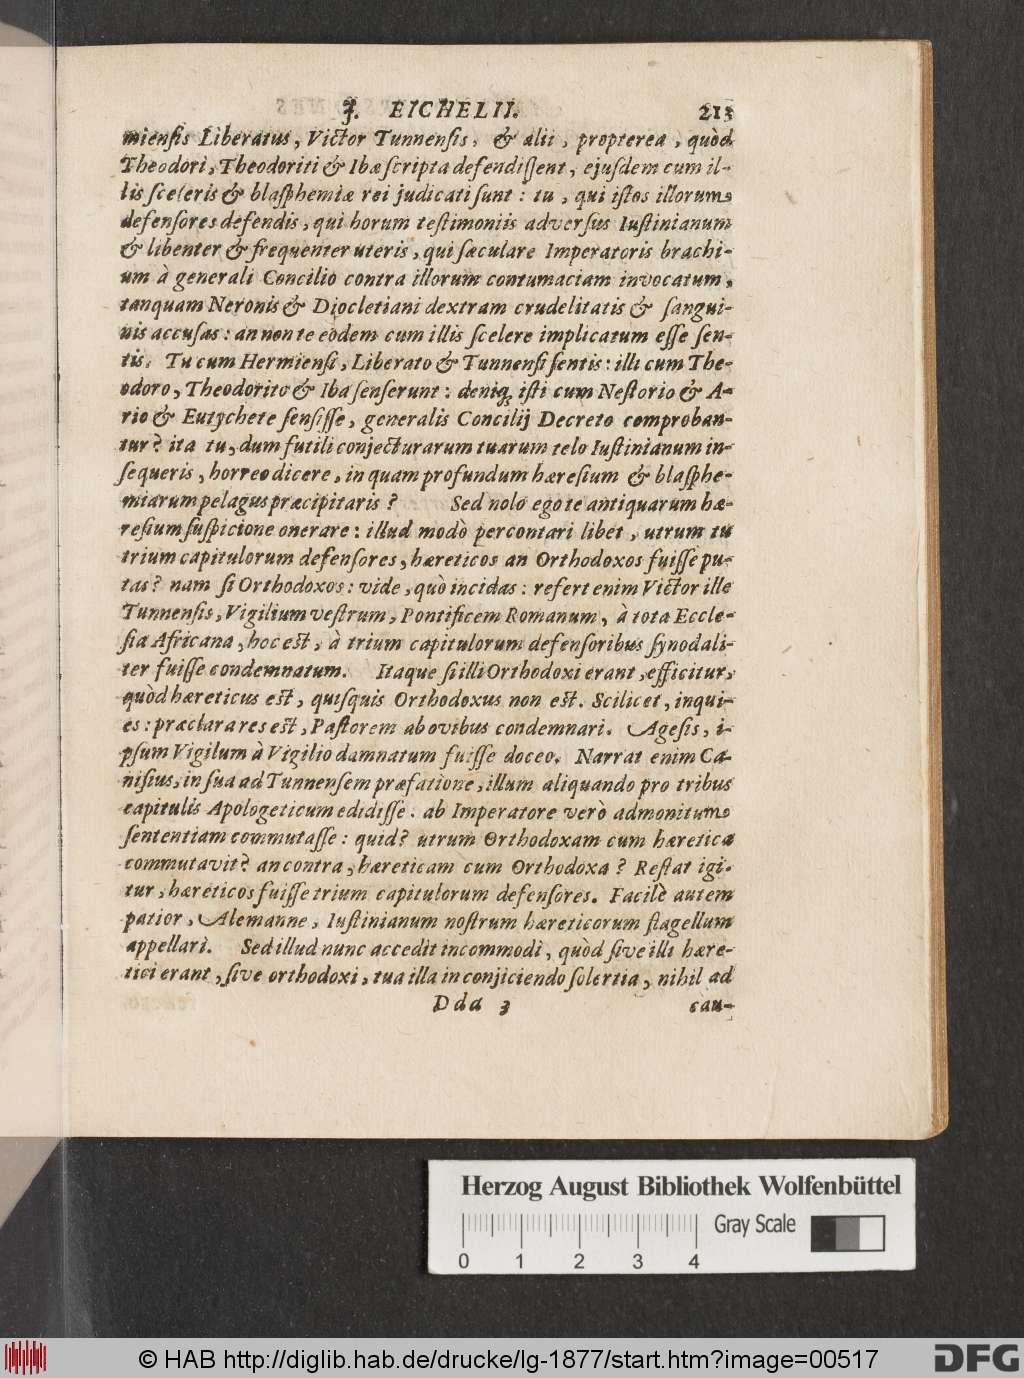 J. EICHELII. 213
miensis Liberatus, Victor Tunnensis, & alii, propterea, quòd
Theodori, Theodoriti & Ibæ scripta defendissent, ejusdem cum il-
lis sceleris & blasphemiæ rei judicati sunt: tu, qui istos illorum
defensores defendis, qui horum testimoniis adversus Iustinianum
& libenter & frequenter uteris, qui sæculare Imperatoris brachi-
um à generali Concilio contra illorum contumaciam invocatum,
tanquam Neronis & Diocletiani dextram crudelitatis & sangui-
nis accusas: an non te eodem cum illis scelere implicatum esse sen-
tis. Tu cum Hermiensi, Liberato & Tunnensi sentis: illi cum The-
odoro, Theodorito & Iba senserunt: deniq; isti cum Nestorio & A-
rio & Eutychete sensisse, generalis Concilij Decreto comproban-
tur? ita tu, dum futili conjecturarum tuarum telo Iustinianum in-
sequeris, horreo dicere, in quam profundum hæresium & blasphe-
miarum pelagus præcipitaris? Sed nolo ego te antiquarum hæ-
resium suspicione onerare: illud modò percontari libet, utrum tu
trium capitulorum defensores, hæreticos an Orthodoxos fuisse pu-
tas? nam si Orthodoxos: vide, quò incidas: refert enim Victor ille
Tunnensis, Vigilium vestrum, Pontificem Romanum, à tota Eccle-
sia Africana, hoc est, à trium capitulorum defensoribus synodali-
ter fuisse condemnatum. Itaque si illi Orthodoxi erant, efficitur,
quòd hæreticus est, quisquis Orthodoxus non est. Scilicet, inqui-
es: præclara res est, Pastorem ab ovibus condemnari. Agesis, i-
psum Vigilum à Vigilio damnatum fuisse doceo. Narrat enim Ca-
nisius, in sua ad Tunnensem præfatione, illum aliquando pro tribus
capitulis Apologeticum edidisse. ab Imperatore verò admonitum
sententiam commutasse: quid? utrum Orthodoxam cum hæretica
commutavit? an contra, hæreticam cum Orthodoxa? Restat igi-
tur, hæreticos fuisse trium capitulorum defensores. Facilè autem
patior, Alemanne, Iustinianum nostrum hæreticorum flagellum
appellari. Sed illud nunc accedit incommodi, quòd sive illi hære-
tici erant, sive orthodoxi, tua illa in conjiciendo solertia, nihil ad
Ddd 3 cau-
Herzog August Bibliothek Wolfenbüttel
Gray Scale
0 1 2 3 4
© HAB http://diglib.hab.de/drucke/lg-1877/start.htm?image=00517
DFG